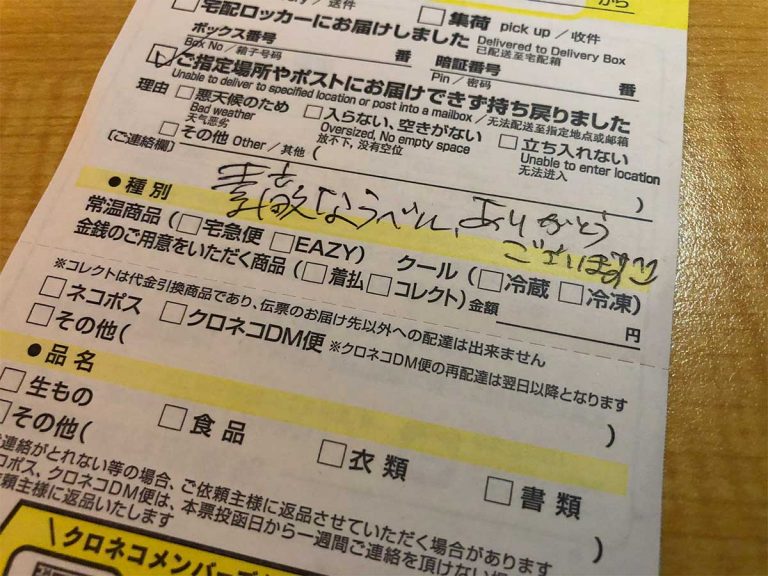 から
送件
□集荷 pick up / 收件
□宅配ロッカーにお届けしました Delivered to Delivery Box
已配送至宅配箱
ボックス番号 番 暗証番号 番
Box No / 箱子号码 Pin / 密码
☑ご指定場所やポストにお届けできず持ち戻りました
Unable to deliver to specified location or post into a mailbox / 无法配送至指定地点或邮箱
理由 □悪天候のため □入らない、空きがない □立ち入れない
Bad weather Oversized, No empty space Unable to enter location
天气恶劣 放不下, 没有空位 无法进入
□その他 Other / 其他 ( )
〔ご連絡欄〕
素敵なラベル、ありがとう
ございます
●種別
常温商品 (□宅急便 □EAZY) クール (□冷蔵 □冷凍)
金銭のご用意をいただく商品 (□着払 □コレクト) 金額 円
※コレクトは代金引換商品であり、伝票のお届け先以外への配達は出来ません
□ネコポス □クロネコDM便 ※クロネコDM便の再配達は翌日以降となります
□その他( )
●品名
□生もの □食品 □衣類 □書類
□その他( )
連絡がとれない等の場合、ご依頼主様に返品させていただく場合があります
コポス、クロネコDM便は、本票投函日から一週間ご連絡を頂けない場
依頼主様に返品いたします
\クロネコメンバーズ